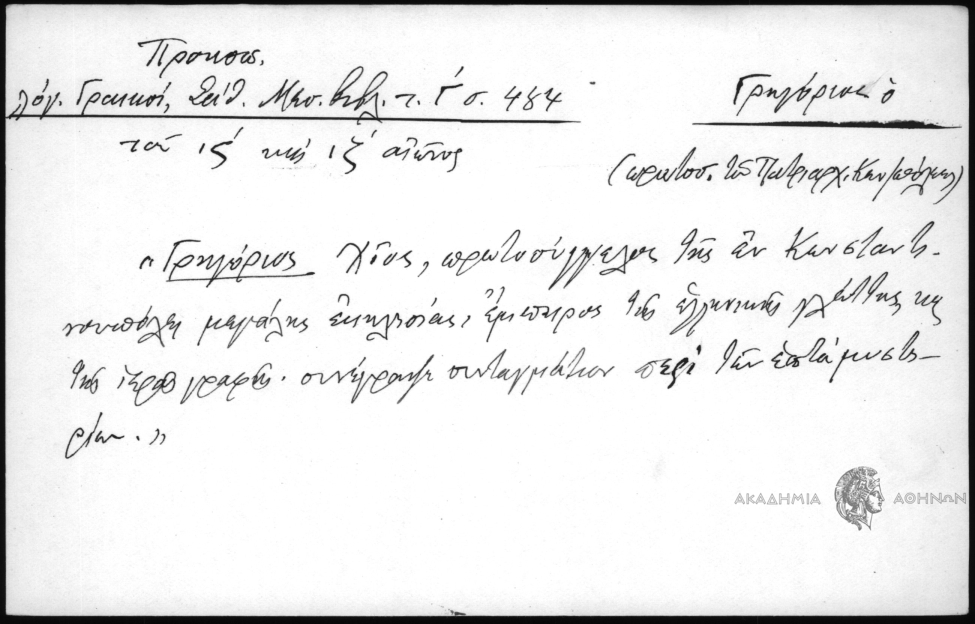 Προκοπ.
λόγ. Γραικοί, Σάθ. Μεσ. βιβλ. τ. Γ΄ σ. 484
τοῦ ις΄ καὶ ιζ΄ αἰῶνος
Γρηγόριος ὁ
(πρωτοσ. τοῦ Πατριαρχ. Κων/πόλεως)
"Γρηγόριος Χῖος, πρωτοσύγγελος τῆς ἐν Κωνσταντι-
νουπόλει μεγάλης ἐκκλησίας, ἔμπειρος τῆς ἑλληνικῆς γλώττης καὶ
τῆς ἱερᾶς γραφῆς. συνέγραψε συνταγμάτιον περὶ τῶν ἑπτὰ μυστη-
ρίων."
ΑΚΑΔΗΜΙΑ ΑΘΗΝΩΝ